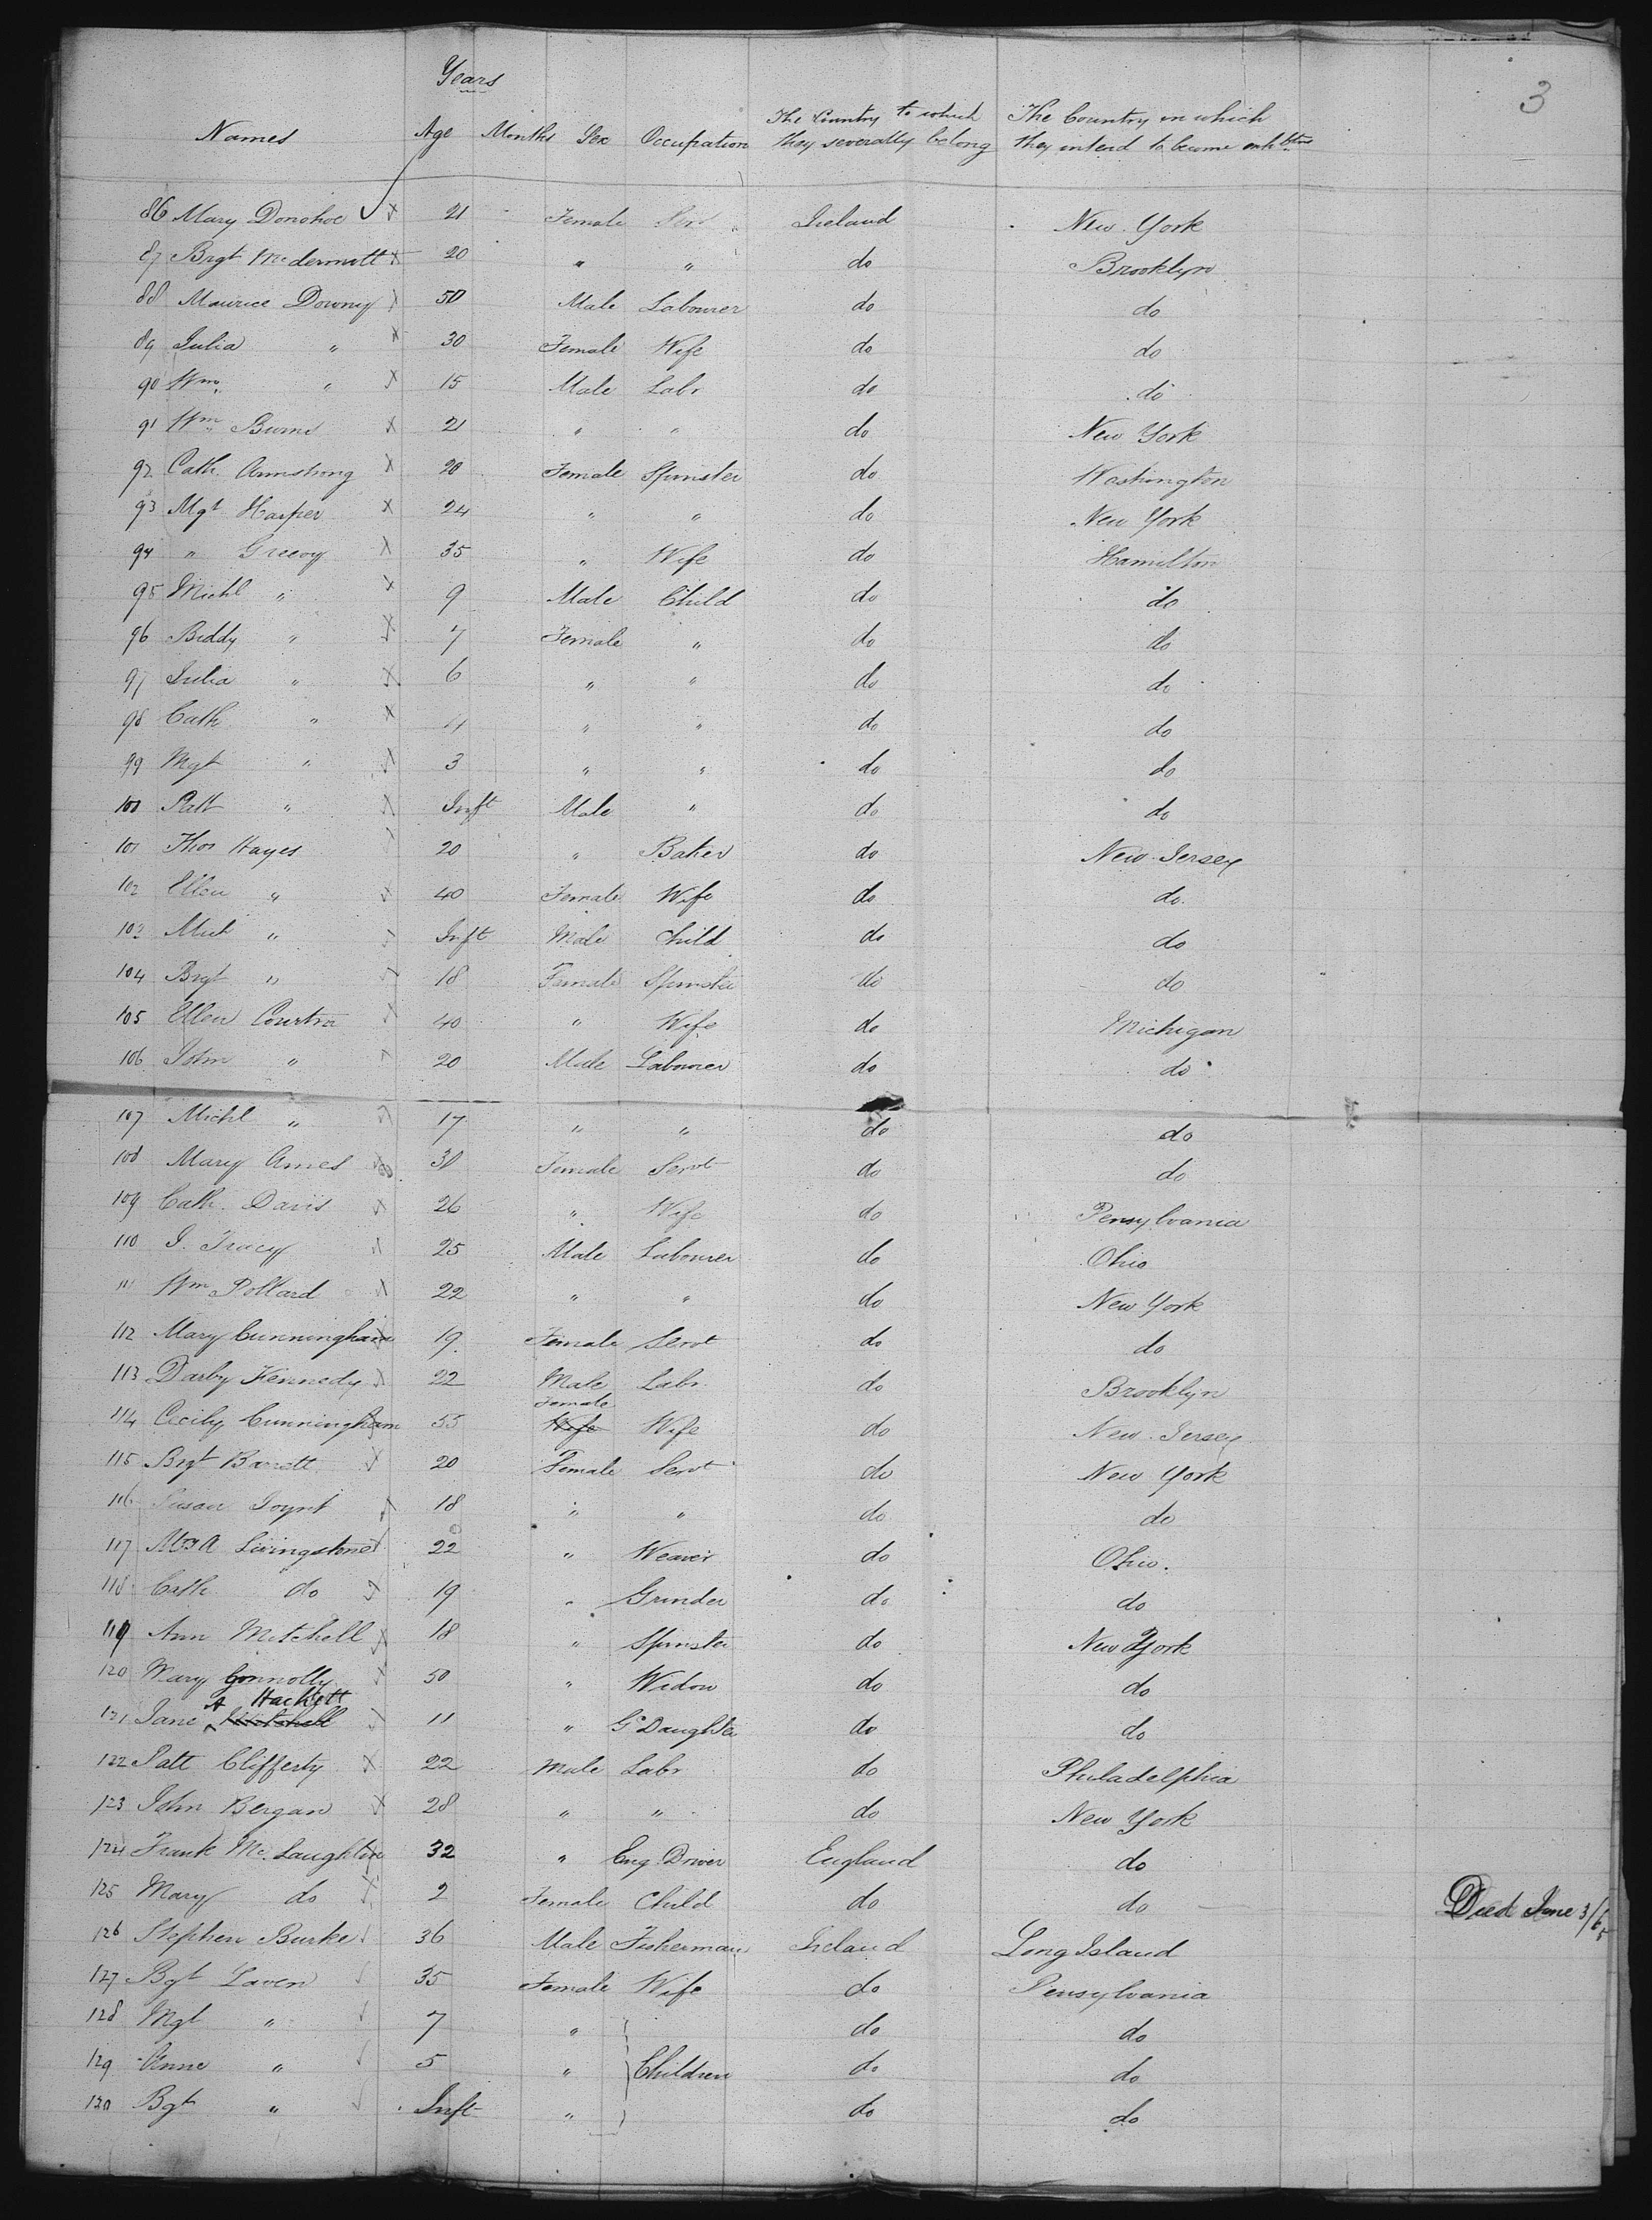 3
Years
Names Age Months Sex Occupation The Country to which they severally belong The Country in which they intend to become inhbtns
86 Mary Donohoe x 21 Female Serv Ireland New York
87 Brgt Mcdermott x 20 " " do Brooklyn
88 Maurice Downy x 50 Male Labourer do do
89 Julia " x 30 Female Wife do do
90 Wm " x 15 Male Labr do do
91 Wm Burns x 21 " " do New York
92 Cath Armstrong x 20 Female Spinster do Washington
93 Mgt Harper x 24 " " do New York
94 " Greevy x 35 " Wife do Hamilton
95 Michl " x 9 Male Child do do
96 Biddy " x 7 Female " do do
97 Julia " x 6 " " do do
98 Cath " x 4 " " do do
99 Mgt " x 3 " " do do
100 Patt " x Inft Male " do do
101 Thos Hayes 20 " Baker do New Jersey
102 Ellen " 40 Female Wife do do
103 Mich " Inft Male Child do do
104 Brgt " 18 Female Spinster do do
105 Ellen x 40 " Wife do Michigan
106 John " 20 Male Labourer do do
107 Michl " 17 " " do do
108 Mary Ames 30 Female Servt do do
109 Cath. Davis x 26 " Wife do Pensylvania
110 J. Tracy 25 Male Labourer do Ohio
111 Wm Pollard x 22 " " do New York
112 Mary Cunningham 19 Female Servt do do
113 Darby Kennedy x 22 Male Labr do Brooklyn
Female
114 Cecily Cunningham 55 Wife Wife do New Jersey
115 Brgt Barrett x 20 Female Servt do New York
116 Susan Joynt 18 " " do do
117 Livingstone 22 " Weaver do Ohio.
118 Cath do x 19 " Grinder do do
119 Ann Mitchell x 18 " Spinster do New York
120 Mary Connolly x 50 " Widow do do
A Hackett
121 Jane Mitchell 11 " Gd Daughter do do
122 Patt Clifferty x 22 Male Labr do Philadelphia
123 John Bergan x 28 " " do New York
124 Frank Mc. Laughlin 32 " Eng. Driver England do
125 Mary do x 2 Female Child do do Died June 3/65
126 Stephen Burke 36 Male Fisherman Ireland Long Island
127 Bgt Laven 35 Female Wife do Pensylvania
128 Mgt " 7 " do do
129 Anne " 5 " Children do do
130 Bgt " Inft " do do